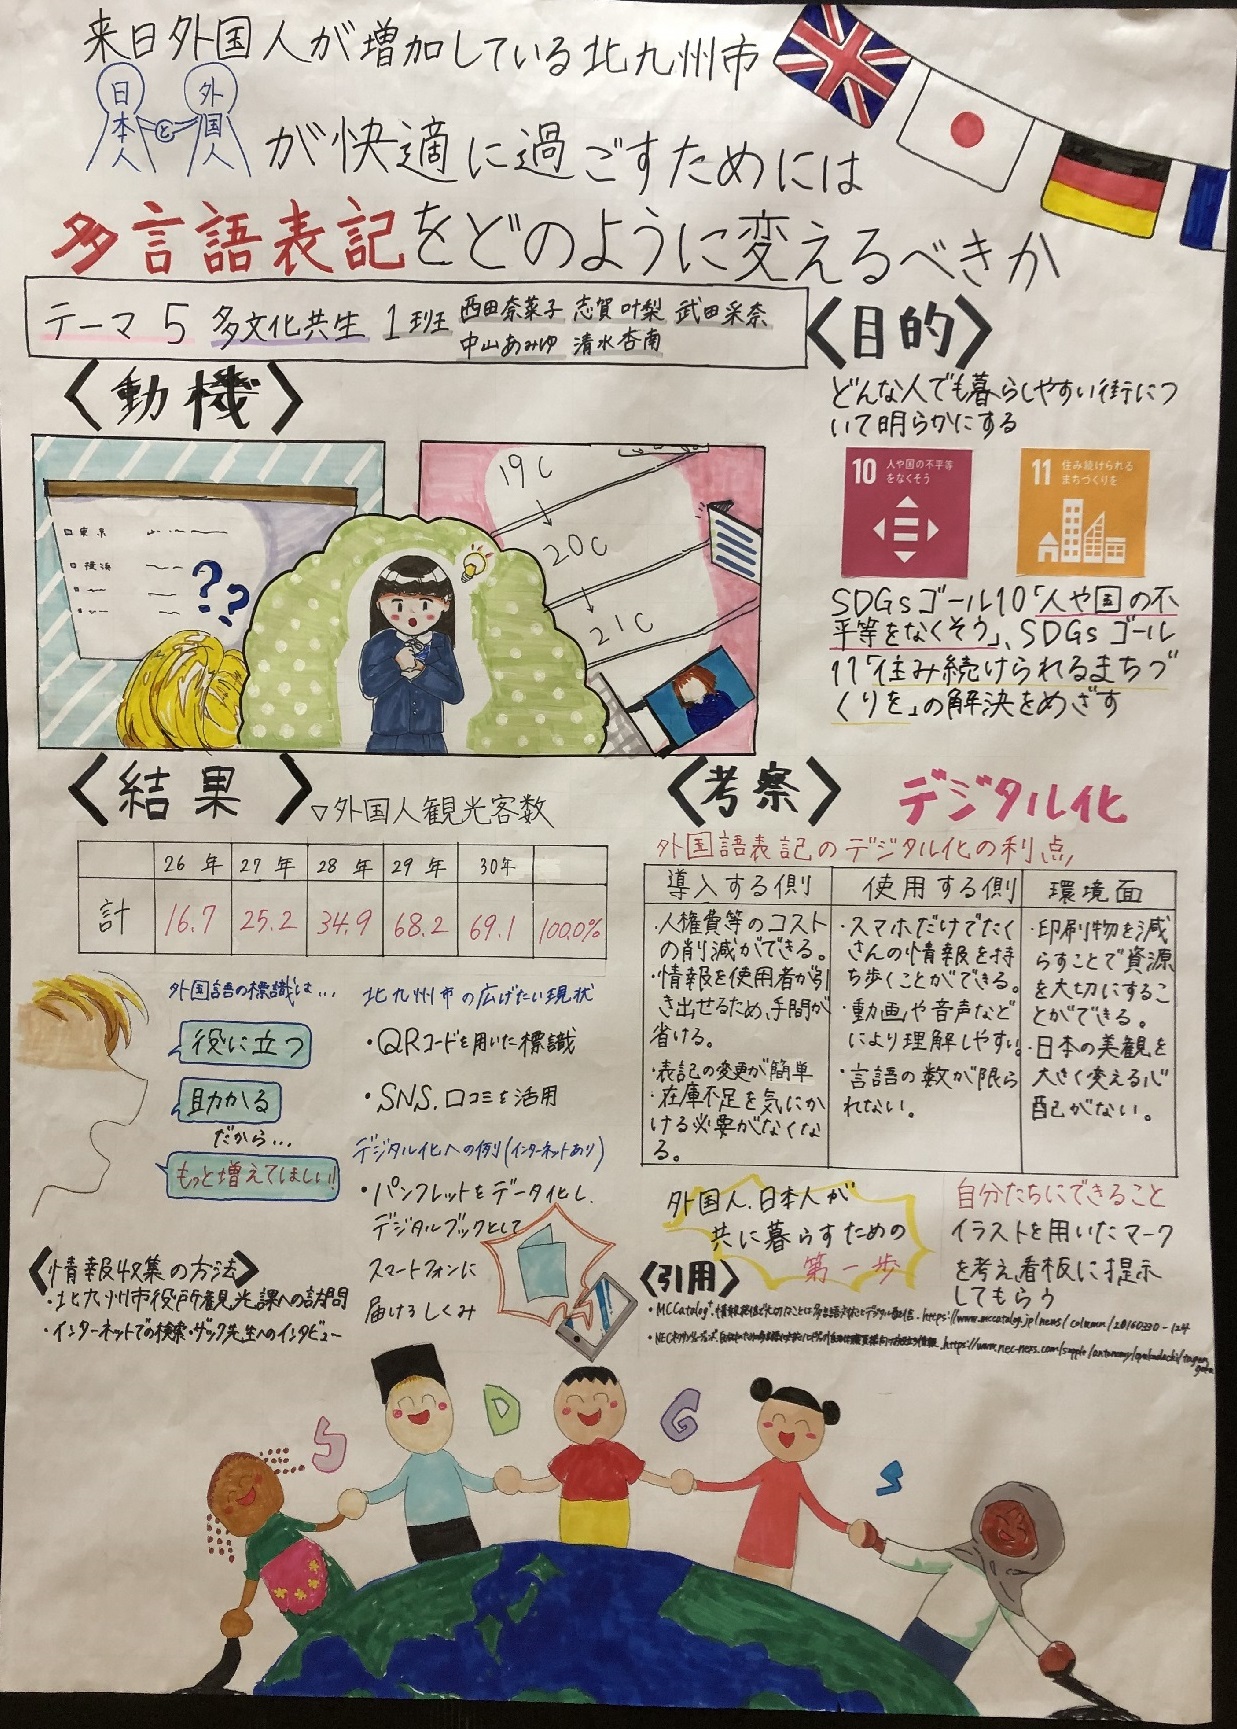 来日外国人が増加している北九州市
日本人と外国人が快適に過ごすためには
多言語表記をどのように変えるべきか
テーマ5 多文化共生 1班 西田奈菜子 志賀叶梨 武田采奈
中山あみゆ 清水杏南
〈目的〉
どんな人でも暮らしやすい街につ
いて明らかにする
10 人や国の不平等
をなくそう
11 住み続けられる
まちづくりを
SDGsゴール10「人や国の不
平等をなくそう」、SDGsゴール
11「住み続けられるまちづ
くりを」の解決をめざす
〈動機〉
東京
横浜
??
19C
↓
20C
↓
21C
〈結果〉
▽外国人観光客数
26年 27年 28年 29年 30年
計 16.7 25.2 34.9 68.2 69.1 100.0%
外国語の標識は…
役に立つ
助かる
だから…
もっと増えてほしい!
北九州市の広げたい現状
・QRコードを用いた標識
・SNS.口コミを活用
デジタル化への例(インターネットあり)
・パンフレットをデータ化し.
デジタルブックとして
スマートフォンに
届けるしくみ
〈情報収集の方法〉
・北九州市役所観光課への訪問
・インターネットでの検索・ザック先生へのインタビュー
〈考察〉 デジタル化
外国語表記のデジタル化の利点
導入する側
・人権費等のコスト
の削減ができる。
・情報を使用者が引
き出せるため、手間が
省ける。
・表記の変更が簡単
・在庫不足を気にか
ける必要がなくな
る。
使用する側
・スマホだけでたく
さんの情報を持
ち歩くことができる。
・動画や音声など
により理解しやすい。
・言語の数が限ら
れない。
環境面
・印刷物を減
らすことで資源
を大切にするこ
とができる。
・日本の美観を
大きく変える心
配がない。
外国人.日本人が
共に暮らすための
第一歩
自分たちにできること
イラストを用いたマーク
を考え看板に提示
してもらう
〈引用〉
・MCCatalog+ https://www.mccatalog.jp/news/column/20160330-124
S D G s